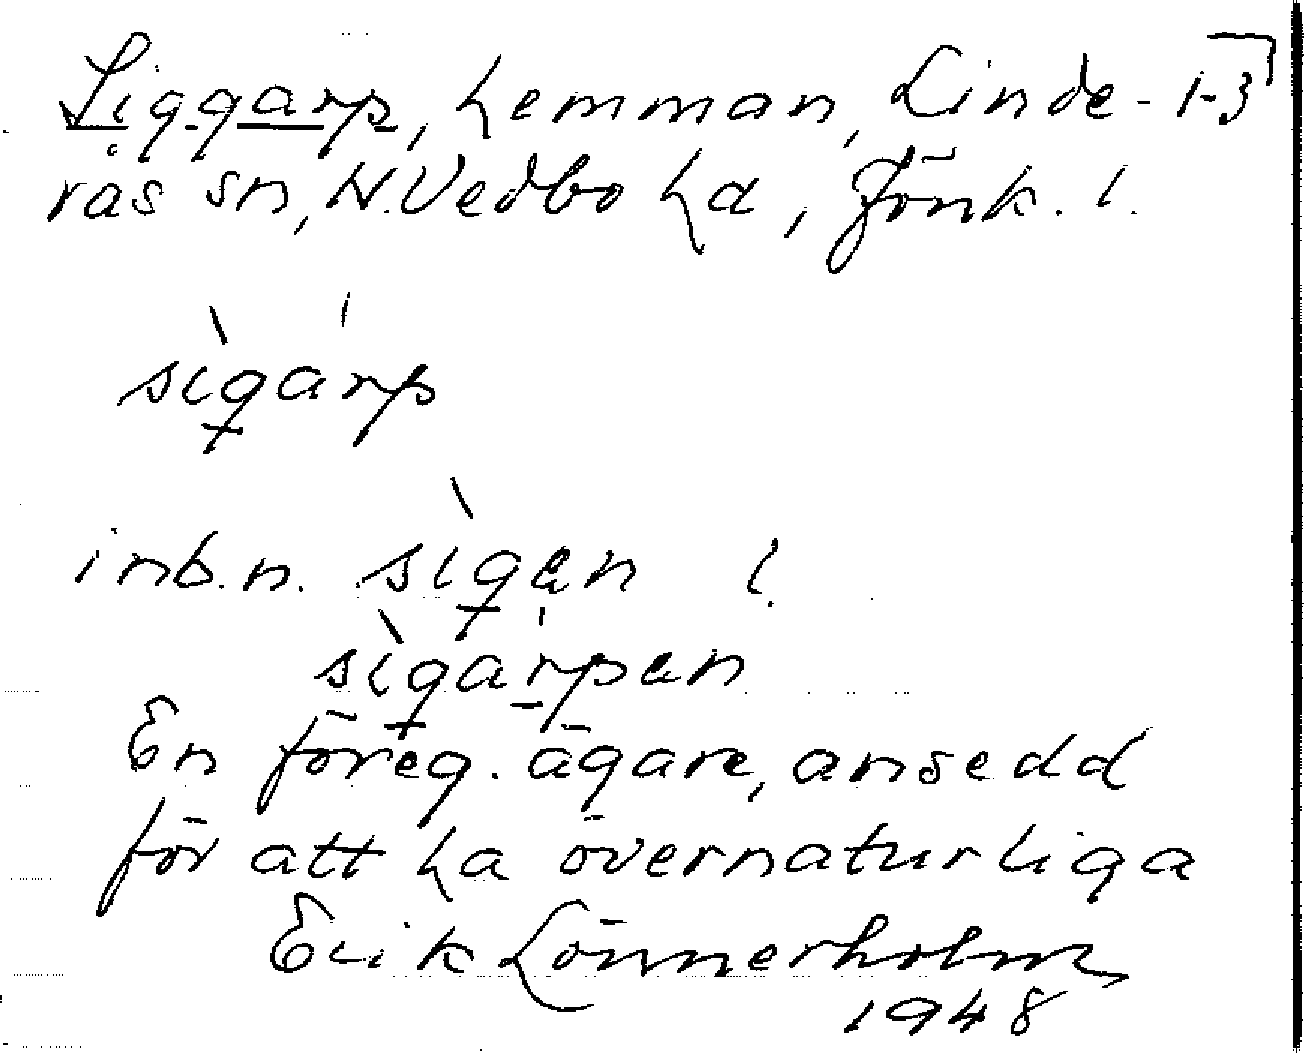 Siggarp, hemman, Linde- 1-3
rås sn, N. Vedbo hd, Jönk. l.
sìgárp
inb.n. sìgen l.
sìgárpen
En föreg. ägare, ansedd
för att ha övernaturliga
Erik Lönnerholm
1948